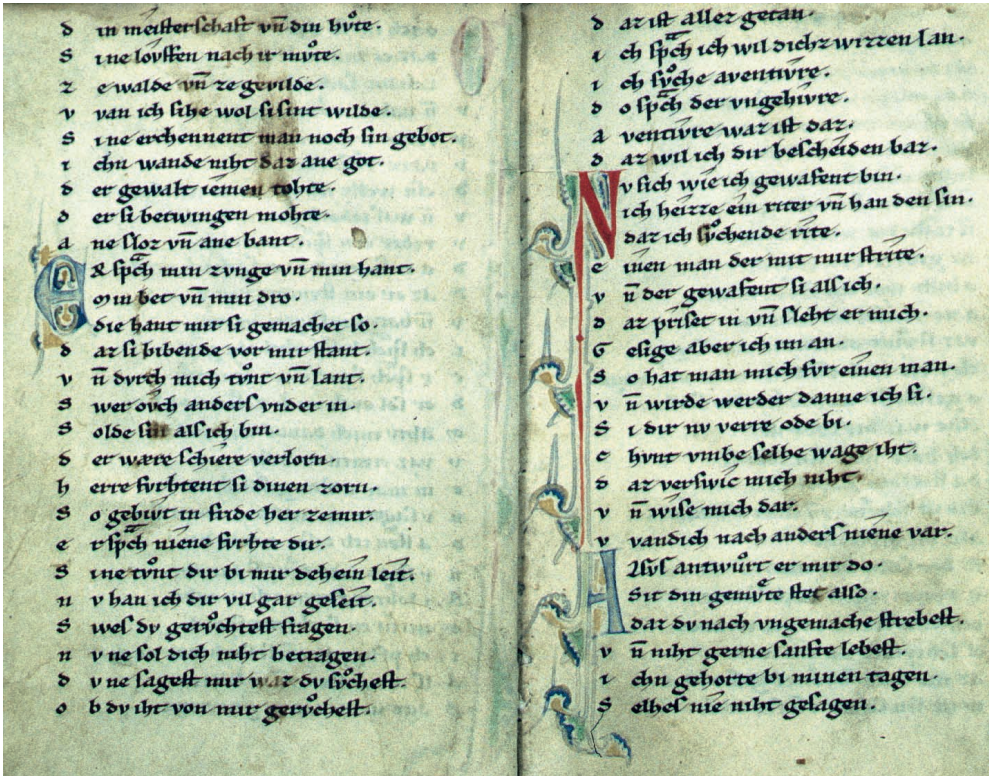 d in meisterschaft vn̄ din hv̊te.
S ine lovffen nach ir mv̊te.
z e walde vn̄ ze gevilde.
v van ich sihe wol si sint wilde.
S ine erchennent man noch sin gebot.
i chn wande niht daz ane got.
d er gewalt iemen tohte.
d er si betwingen mohte.
a ne sloz vn̄ ane bant.
Er sp̄ch min zvnge vn̄ min hant.
min bet vn̄ min dro.
die hant mir si gemachet so.
d az si bibende vor mir stant.
v n̄ dvrch mich tv̊nt vn̄ lant.
S wer ovch anders vnder in.
S olde sin als ich bin.
d er wære schiere verlorn.
h erre fvrhtent si dinen zorn.
S o gebivt in fride her ze mir.
e r sp̄ch niene fvrhte dir.
S ine tv̊nt dir bi mir dehein leit.
n v han ich dir vil gar geseit.
S wes dv gerv̊chtest fragen.
n v ne sol dich niht betragen.
d v ne sagest mir waz dv sv̊chest.
o b dv iht von mir gerv̊chest.
d az ist allez getan.
i ch sp̄ch ich wil dichz wizzen lan.
i ch sv̊che aventivre.
d o sp̄ch der vngehivre.
a ventivre waz ist daz.
d az wil ich dir bescheiden baz.
Nv sich wie ich gewafent bin.
ich heizze ein riter vn̄ han den sin.
daz ich sv̊chende rite.
e inen man der mit mir strite.
v n̄ der gewafent si als ich.
d az priset in vn̄ sleht er mich.
G esige aber ich im an.
S o hat man mich fvr einen man.
v n̄ wirde werder danne ich si.
S i dir nv verre ode bi.
c hvnt vmbe selhe wage iht.
d az verswic mich niht.
v n̄ wise mich dar.
v vandich nach anders niene var.
Alsvs antwůrt er mir do.
Sit din gemv̊te stet also.
daz dv nach vngemache strebest.
v n̄ niht gerne sanfte lebest.
i chn gehorte bi minen tagen.
S elhes nie niht gesagen.